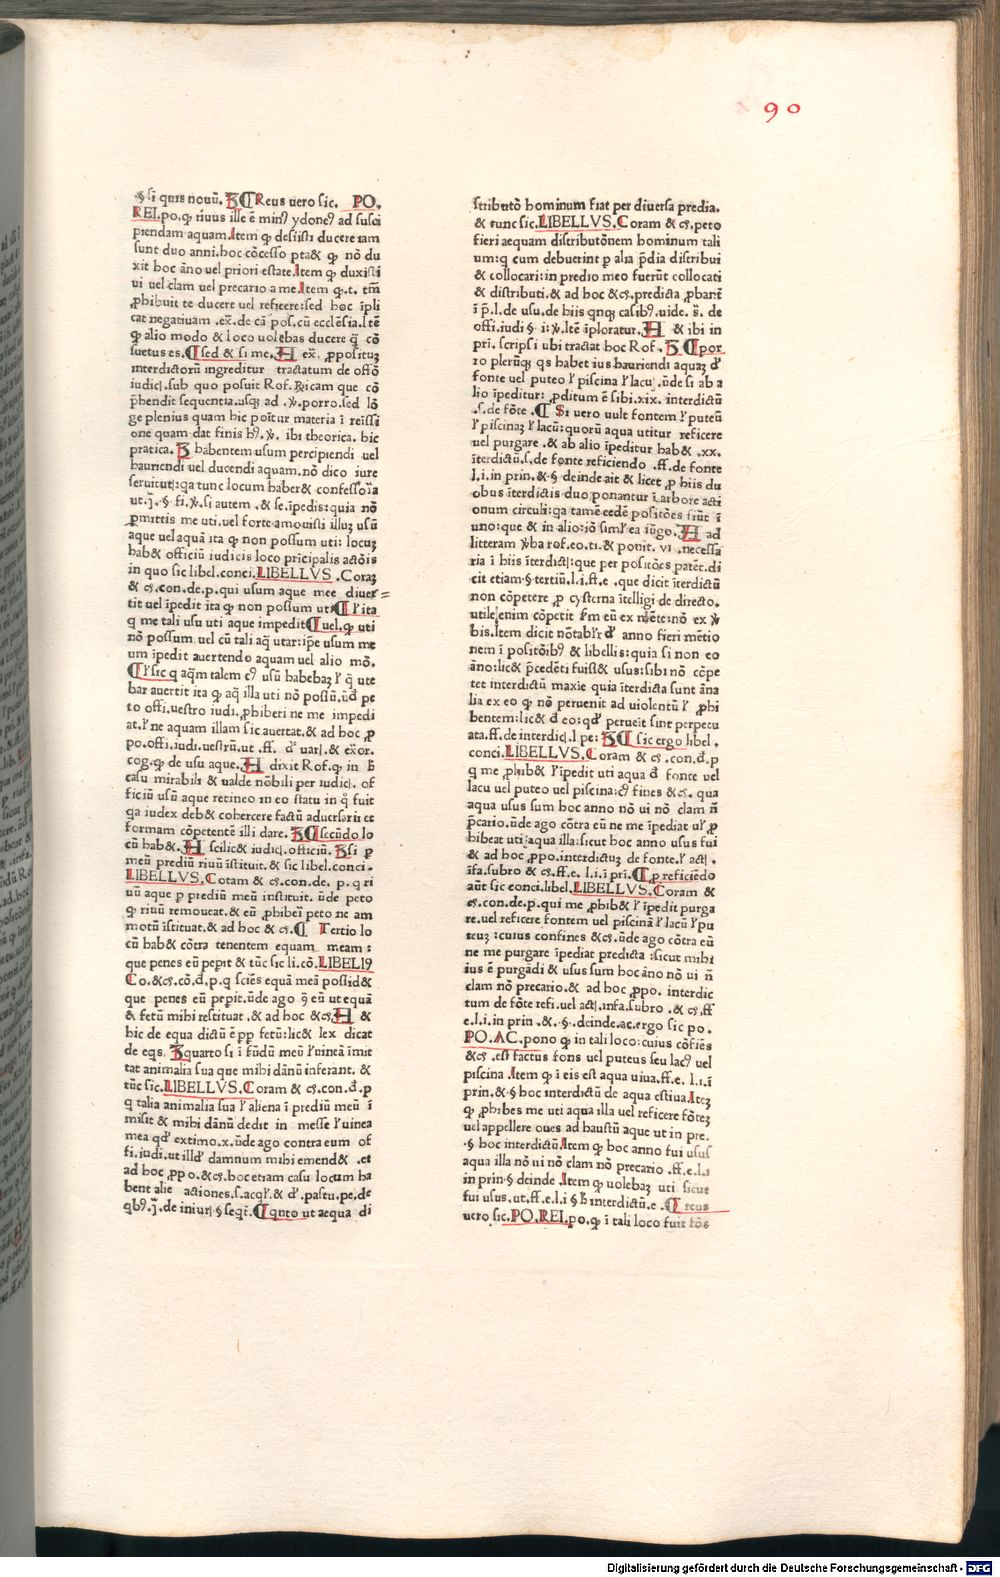 90
§ si quis nouū. B ¶ Reus uero sic. PO.
REI. po. ꝙ riuus ille ē minꝰ ydoneꝰ ad susci
piendam aquam. Item ꝙ desiisti ducere iam
sunt duo anni. hoc cōcesso ꝓta& ꝙ nō du
xit hoc āno uel priori estate. Item ꝙ duxisti
ui uel clam uel precario a me. Item ꝙ. t. tm̄
ꝓhibuit te ducere uel reficere: sed hoc īpli
cat negatiuam
ꝙ alio modo & loco uolebas ducere
suetus es. ¶ sed & si me. A ex. ꝓposituꝫ
interdictorū ingreditur tractatum de offō
sub quo posuit Rof.
ꝓhendit sequentia. usqꝫ ad porro. sed lō
ge plenius quam hic poītur materia ī reīssi
one quam dat finis ibi theorica. hic
pratica. B habentem usum percipiendi uel
hauriendi uel ducendi aquam. nō dico iure
locum haber& confessoria
si autem. & se. īpedis: quia nō
ꝑmittis me uti. uel forte amouisti illuꝫ usū
aque uel aquā ita ꝙ non possum uti: locuꝫ
hab& officiū iudicis loco prīcipalis actōis
in quo sic libel. conci. LIBELLVS. Coraꝫ
con. de. p. qui usum aque mee diuer=
tit uel īpedit īta ꝙ non possum uti ¶ ł ita
q me tali usu uti aque impedit ¶ uel. ꝙ uti
nō possum uel cū tali aq̄ utar: ip̄e usum me
um īpedit auertendo aquam uel alio mō.
¶ ł sic q aq̄m talem
bar auertit ita ꝙ aq̄ illa uti nō possū. ūd̄ pe
to offi. uestro iudi. ꝓhiberi ne me impedi
at. ł ne aquam illam sic auertat. & ad hoc ꝓ
po. offi. iudi. uestrū. ut. ff.
cog. ꝙ de usu aque. A dixit Rof. ꝙ in
casu mirabili & ualde nōbili per of
ficiū usū aque retineo in eo statu in fuit
qa iudex deb& cohercere factū aduersarii et
formam cōpetentē illi dare. B ¶ secūdo lo
cū hab&. A scilic& officiū. B si p
meū prediū riuū īstituit. & sic libel. conci.
LIBELLVS. Coram con. de. p. q ri
uū aque p prediū meū instituit. ūde peto
ꝙ riuū remoueat. & eū ꝓhiberi peto ne am
motū īstituat. & ad hoc ¶ Tertio lo
cū hab& cōtra tenentem equam meam:
que penes eū pepit & tūc sic li. cō. LIBELLꝰ
q sciēs equā meā possid&
que penes eū pepit. ūde ago eū ut equā
& fetū mihi restituat. & ad hoc A &
hic de equa dictū ē pp fetū: lic& lex dicat
de eqs. B quarto si ī fūdū meū ł uineā īmit
tat animalia sua que mihi dānū inferant. &
tūc sic. LIBELLVS. Coram con. d̄. p
q talia animalia sua ł aliena ī prediū meū ī
misit & mihi dānū dedit in messe ł uinea
mea extimo. x. ūde ago contra eum of
fi. iudi. ut damnum mihi emend&. et
ad hoc hoc etiam casu locum ha
bent alie actiones. de
de iniur ¶ qnto ut aequa di
stributō hominum fiat per diuersa predia.
& tunc sic. LIBELLVS. Coram peto
fieri aequam distributōnem hominum tali
um: q cum debuerint p alia p̄dia distribui
& collocari: in predio meo fuerūt collocati
& distributi. & ad hoc predicta
de usu. de hiis casibꝰ. uide. de
īploratur. A & ibi in
pri. scripsi ubi tractat hoc Rof. B ¶ por
ro plerūqꝫ qs habet ius hauriendi aquaꝫ
fonte uel puteo ł piscina ł lacu. ūde si ab a
lio īpeditur: ꝓditum ē sibi. xix. interdictū
.s. de fōte. ¶ Si uero uult fontem ł puteū
ł piscinaꝫ ł lacū: quorū aqua utitur reficere
uel purgare. & ab alio īpeditur hab&. xx.
īterdictū. s. de fonte reficiendo. ff. de fonte
l. i. in prin. & § deinde ait & licet p hiis du
obus īterdictis duo ponantur ī arbore acti
onum circuli: qa tamē eedē positōes fiūt ī
uno: que & in alio: iō siml̄ ea iūgo. A ad
litteram rof. eo. ti. & ponit. vi. necessa
ria ī hiis īterdict: que per positōes patēt. di
cit etiam. § tertiū. l. i. st. e. que dicit īterdictū
non cōpetere ꝓ cysterna ītelligi de directo.
utile enim cōpetit eū ex
bis. Item dicit nōtabłr anno fieri mētio
nem ī positōibꝰ & libellis: quia si non eo
āno: lic& p̄cedēti fuist& usus: sibi nō cōpe
tet interdictū maxīe quia īterdicta sunt āna
lia ex eo ꝙ nō peruenit ad uiolentū ł ꝓhi
bentem: lic& eo: perueīt sint perpetu
ata. ff. de interdic B ¶ sic ergo libel.
conci. LIBELLVS. Coram con. d̄. p
q me ꝓhib& ł īpedit uti aqua d̄ fonte uel
lacu uel puteo uel piscina: fines qua
aqua usus sum hoc anno nō ui nō clam n̄
p̄cario. ūde ago cōtra eū ne me īpediat
hibeat uti aqua illa: sicut hoc anno usus fui
& ad hoc ꝓpo. interdictuꝫ de fonte.
īfa. subro ff. e. l. i. ī pri. ¶ ꝓ reficiēdo
aūt sic conci. libel. LIBELLVS. Coram &
con. de. p. qui me ꝓhib& ł īpedit purga
re. uel reficere fontem uel piscinā ł lacū ł pu
teuꝫ: cuius confines ūde ago cōtra eū
ne me purgare īpediat predicta: sicut mihi
ius ē purgādi & usus sum hoc āno nō ui n̄
clam nō precario. & ad hoc ꝓpo. interdic
tum de fōte refi. uel act. infa. subro. ff
e. l. i. in prin. & §. deinde. ac. ergo sic po.
PO. AC. pono ꝙ in tali loco: cuius cōfiēs
est factus fons uel puteus seu lacꝰ uel
piscina. Item ꝙ ī eis est aqua uiua. ff. e. l. i. ī
prin. & § hoc interdictū de aqua estiua. Iteꝫ
ꝙ ꝓhibes me uti aqua illa uel reficere fōteꝫ
uel appellere oues ad haustū aque ut in pre.
§ hoc interdictū. Item ꝙ hoc anno fui usus
aqua illa nō ui nō clam nō precario. ff. e. l. i
in prin § deinde. Item ꝙ uolebaꝫ uti sicut
fui usus. ut. ff. e. l. i § interdictū. e. ¶ reus
uero sic. PO. REI. po. ꝙ ī tali loco fuit fōs
Digitalisierung gefördert durch die Deutsche Forschungsgemeinschaft - DFG